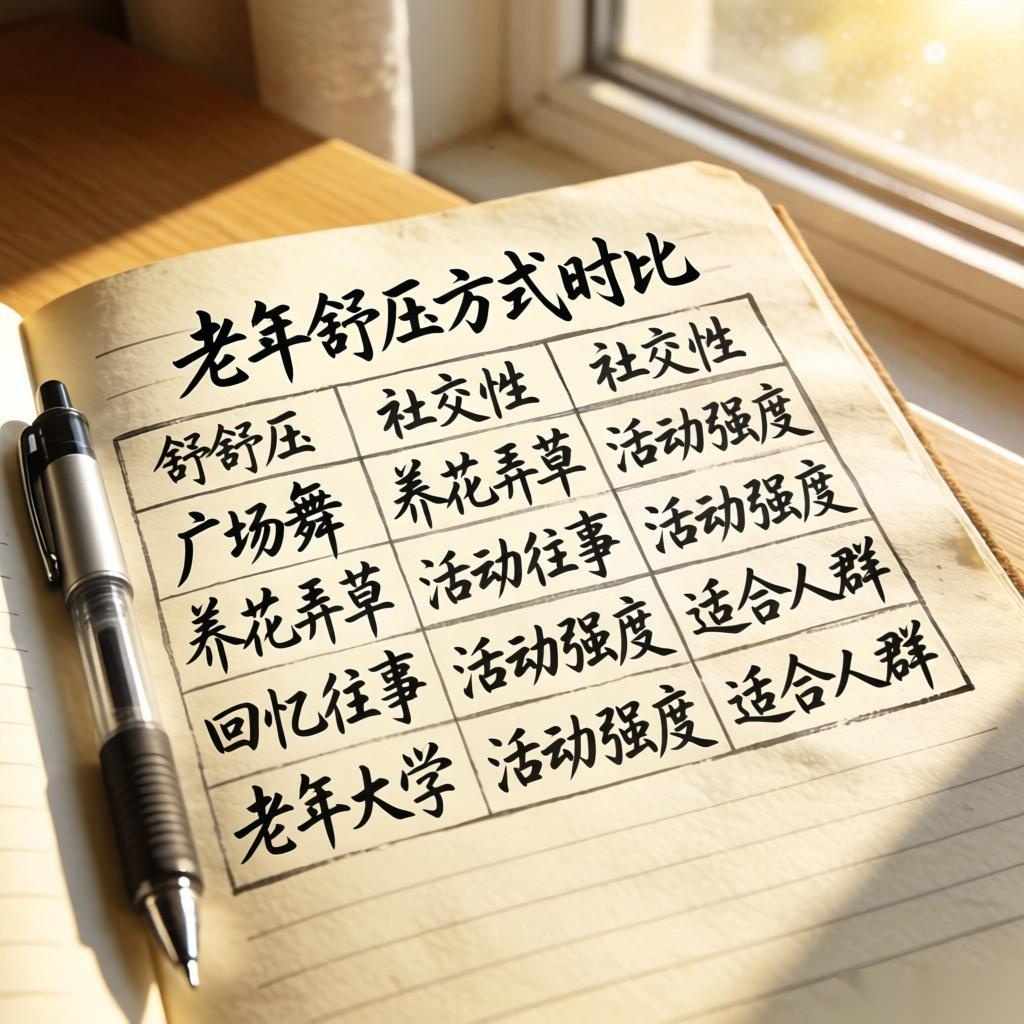 老年舒压方式时比
舒舒压 社交性 社交性
广场舞 养花弄草 活动强度
养花弄草 活动往事 活动强度
回忆往事 活动强度 适合人群
老年大学 活动强度 适合人群